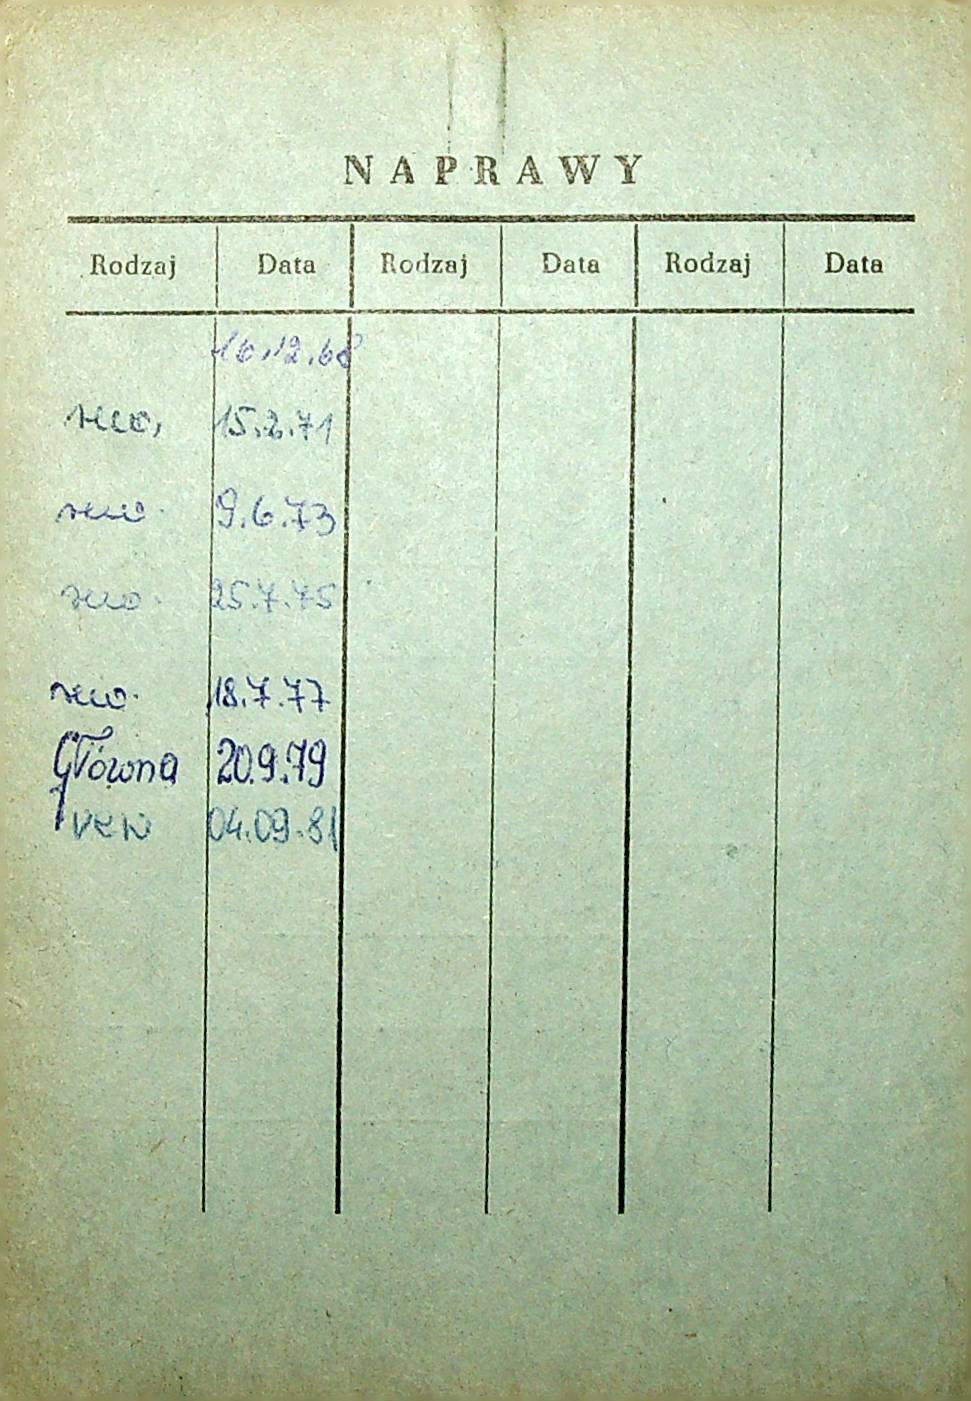 NAPRAWY
Rodzaj Data Rodzaj Data Rodzaj Data
16.12.68
15.2.71
9.6.73
25.7.75
18.7.77
Główna 20.9.79
04.09.81